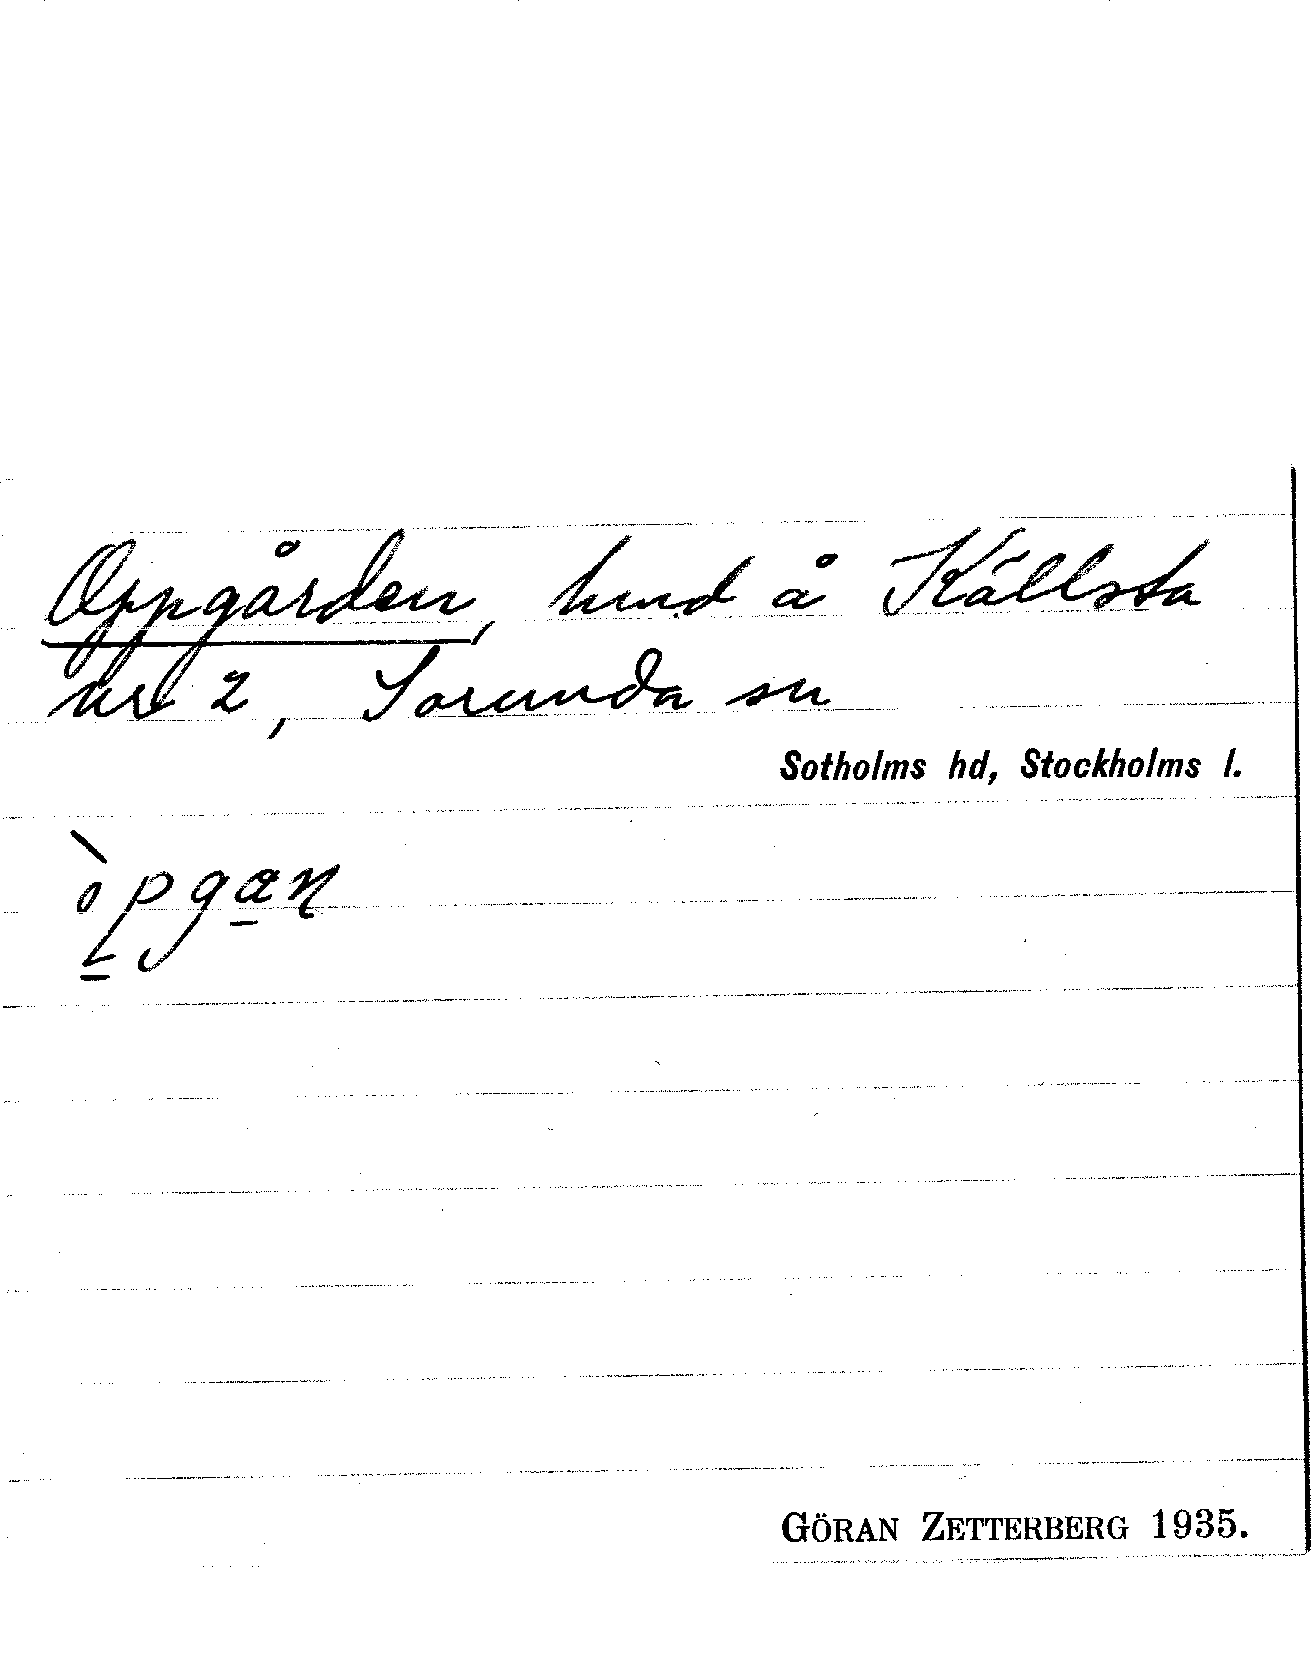 Oppgården, hmd å Källsta
nr 2, Sorunda sn
Sotholms hd, Stockholms l.
GÖRAN ZETTERBERG 1935.